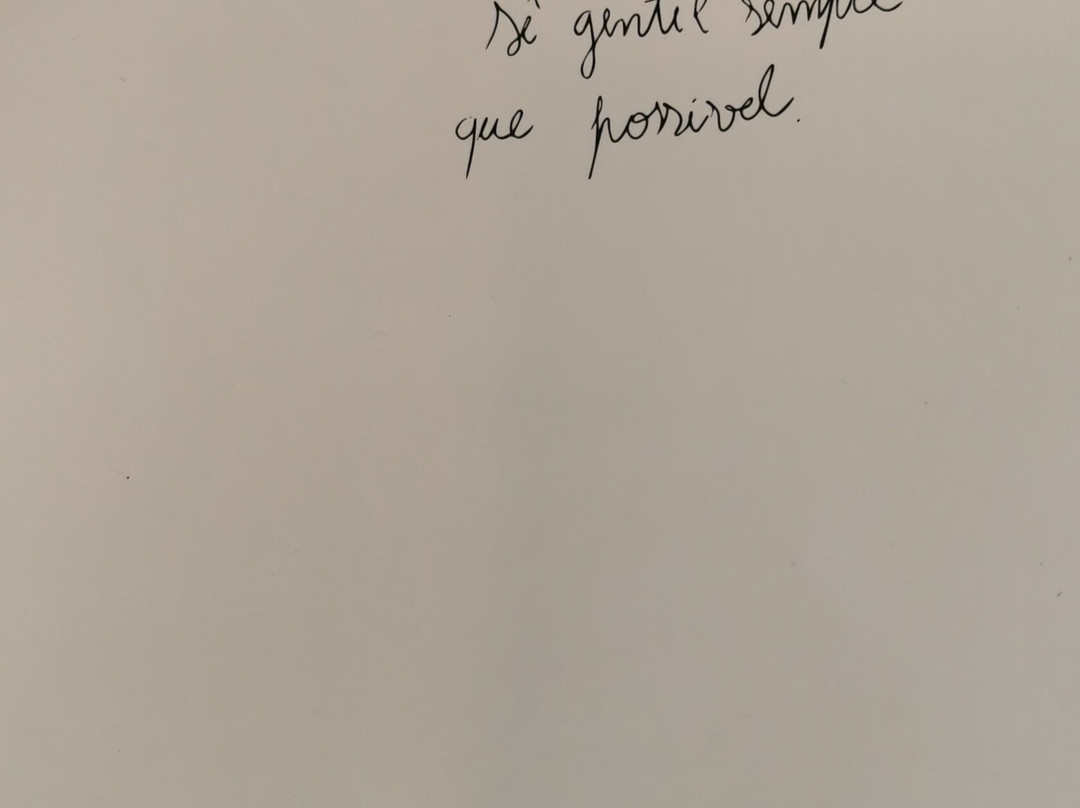 Sê gentil sempre
que possível.